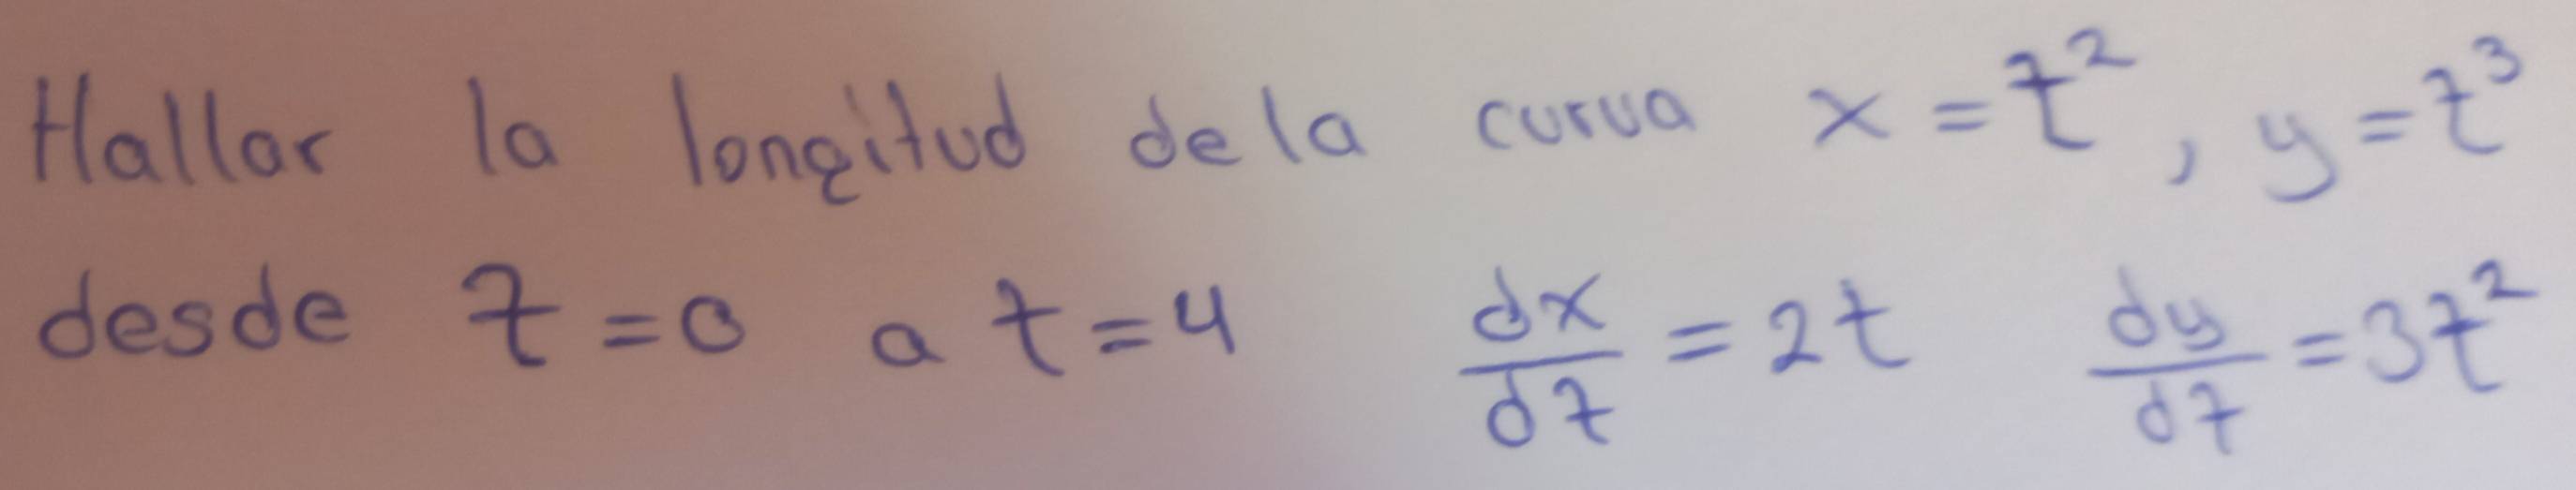 Hallar la longitud de la curva x = t², y = t³
desde t = 0 a t = 4 dx/dt = 2t dy/dt = 3t²